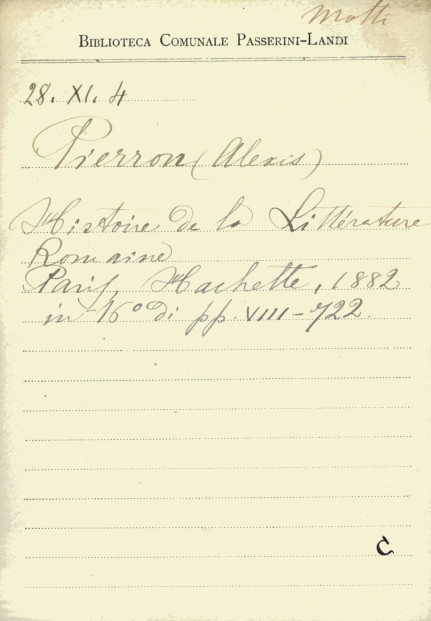 Motti
BIBLIOTECA COMUNALE PASSERINI-LANDI
28. XI. 4
Pierron (Alexis)
Histoire de la Littérature
Romaine
Paris, Hachette, 1882
in 16° di pp. VIII-722.
C